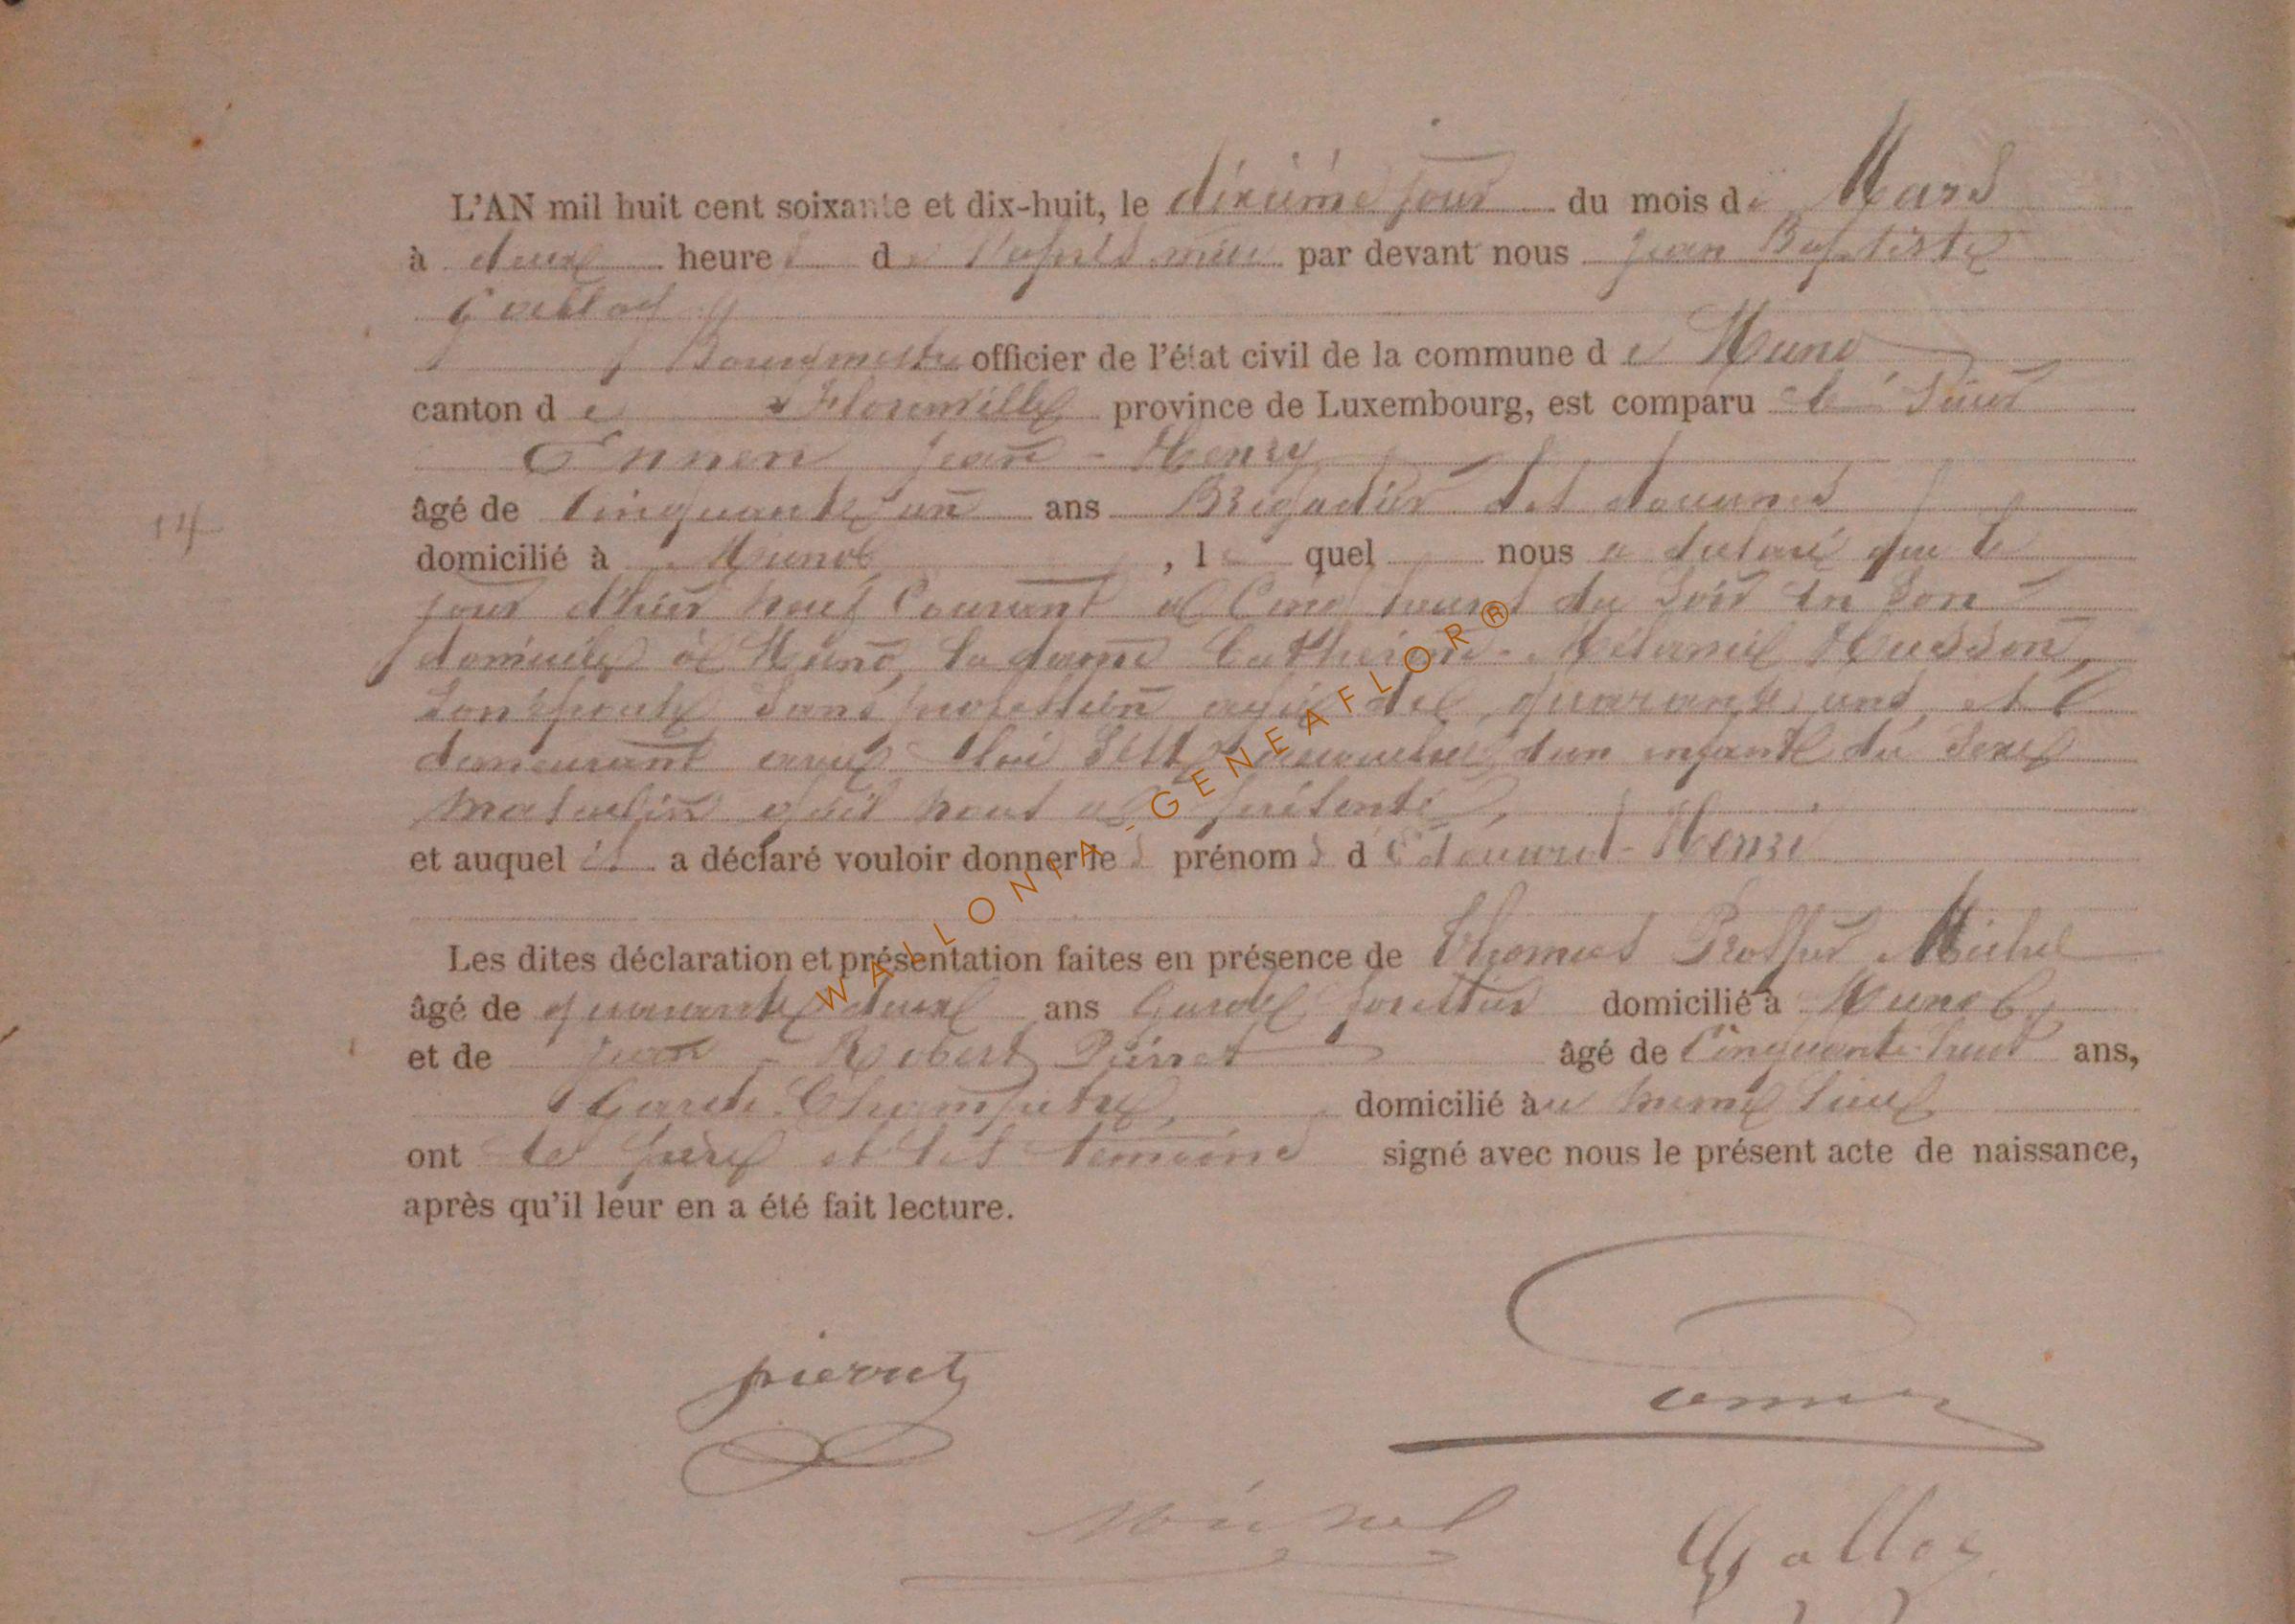 L'AN mil huit cent soixante et dix-huit, le dixième jour du mois de Mars
à deux heures de l'après midi par devant nous Jean Baptiste
Galloy
Bourgmestre officier de l'état civil de la commune de Muno
canton de Florenville province de Luxembourg, est comparu le Sieur
Ennen Jean - Henry
âgé de Cinquante un ans Brigadier des douanes
domicilié à Muno , le quel nous a déclaré que le
jour d'hier neuf Courant à Cinq heures du Soir en Son
domicile à Muno, la dame Catherine - Mélanie Husson,
Son épouse Sans profession agée de quarante ans et
demeurant avec lui S'est accouchée d'un enfant du Sexe
Masculin qu'il nous a présenté,
et auquel il a déclaré vouloir donner les prénoms d Edouard - Henri
Les dites déclaration et présentation faites en présence de Thomas Prosper Michel
âgé de quarante deux ans Garde forestier domicilié à Muno
14
et de Jean - Robert Pierret âgé de Cinquante huit ans,
Garde Champêtre, domicilié au même Lieu
ont le père et les témoins signé avec nous le présent acte de naissance,
après qu'il leur en a été fait lecture.
pierret
Ennen
Michel
Galloy
WALLONIA-GENEAFLOR®